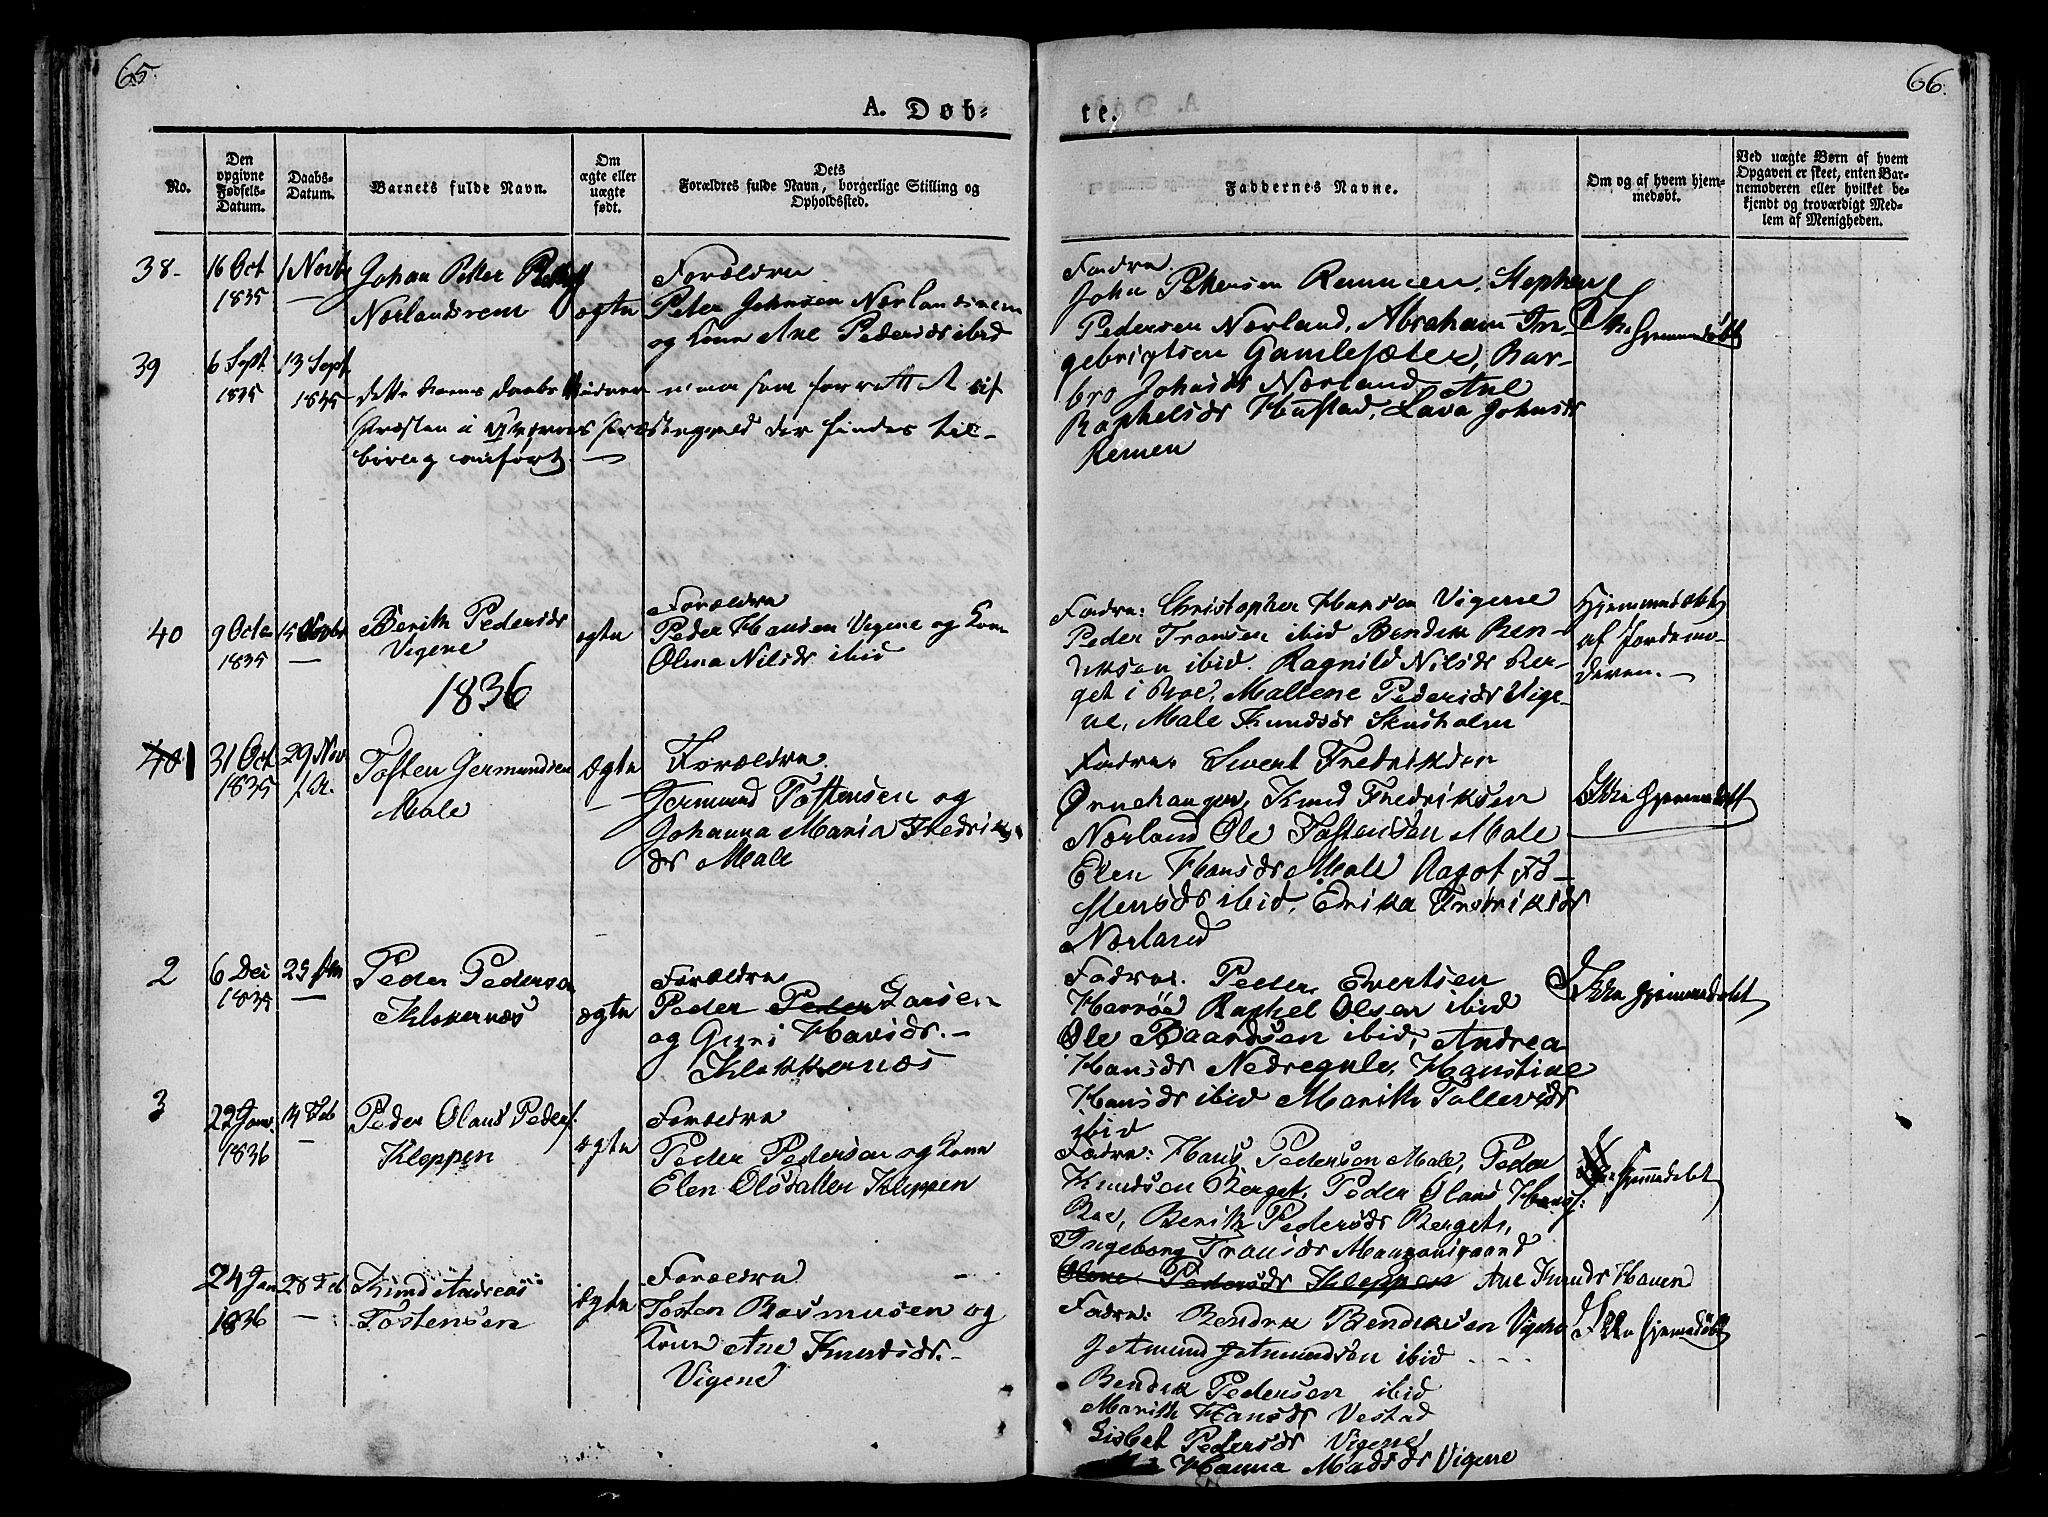 65.
66.
A. Døb-
te.
No.
Den opgivne Fødsels-Datum.
Daabs-Datum.
Barnets fulde Navn.
Om ægte eller uægte født.
Dets Forældres fulde Navn, borgerlige Stilling og Opholdssted.
Faddernes Navne.
Om og af hvem hjem-medøbt.
Ved uægte Børn af hvem Opgaven er skeet, enten Bar-nemoderen eller hvilket be-kjendt og troværdigt Med-lem af Menigheden.
38.
16 Oct
1835
1 Novb
Johan Petter
Norlandsrem
ægte
Forældre
Peter Johnsen Nørlandsrem
og Kone Ane Pedersdr ibid
Fadre.
John Petersen Remmen, Stephen
Pedersen Nørland, Abraham In-
gebrigtsen Gamlesæter, Bar-
bro Johnsdr Nørland, Ane
Raphelsdr Hustad, Lava Johnsdr
Remen
Ikke Hjemmedøbt
39
6 Sept
1835
13 Sept
1835
dette Barns Daab som forrettet af
Præsten i Præstegjeld der findes til-
børlig anført.
40
9 Octo
1835
15 Novbr
Berith Pedersdr
Vigene
ægte
Forældre
Peder Hansen Vigene og Kone
Olina Nilsdr ibid
Fadre: Christopher Hansen Vigene
Peder Transen ibid Bendik Ben-
diksen ibid. Ragnild Nilsdr Ber-
get i Boe, Maltene Pedersdr Vige-
ne, Male Knudsdr Skusholm
Hjemmedøbt
af Jordemo-
deren.
1836
401
31 Oct
1835
29 Nov
f. A.
Tosten Germundsen
Male
Ægte
Forældre
Germund Tostensen og
Johanna Maria Fredriks
dr Male
Fadre Sivert Fredriksen
Ørnehanger, Knud Fredriksen
Nørland Ole Tostensen Male
Elen Hansdr Male Aagot To-
stensdr ibid, Edrika Fredriksdr
Nørland
Ikke Hjemmedøbt
2
6 Dec
1835
25 Jan
Peder Pedersen
Klokernæs
ægte
Forældre
Peder Peder Larsen
og Guri Hansdr.
Klokkernæs
Fadre. Peder Evertsen
Harrøe Raphel Olsen ibid
Ole Baardsen ibid, Andrea
Hansdr Nedregule, Hanstine
Hansdr ibid Marith Tollevsdr
ibid
Ikke Hjemmedøbt
3
22 Janv.
1836
14 Feb
Peder Olaus Peders.
Kleppen
ægte
Forældre
Peder Pedersen og Kone
Elen Olsdatter Kleppen
Fadre: Hans Pedersen Male, Peder
Knudsen Berget, Peder Olaus Hans.
Boe, Berith Pedersdr Berget,
Ingeborg Transdr
Olene Pedersdr Kleppen Ane Knudsdr Haven
Hjemmedøbt
24 Jan
1836
28 Feb
Knud Andreas
Tostensen
ægte
Forældre
Tosten Rasmusen og
Kone Ane Knudsdr.
Vigene
Fadre: Bendik Bendiksen Vigene
Jetmund Jetmundsen ibid
Bendik Pedersen ibid
Marith Hansdr Vestad
Lisbet Pedersdr Vigene
Hanna Madsdr Vigene
Ikke Hjemmedøbt